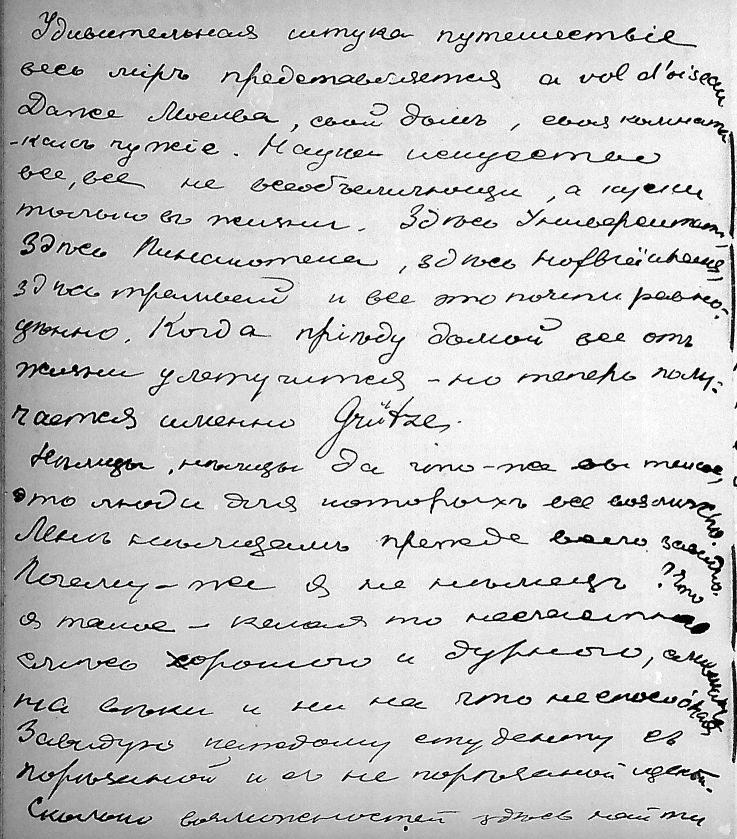 Удивительная штука путешествіе
весь міръ представляется a vol d'oiseau
Даже Москва, свой домъ, своя комната
-какъ чужіе. Наука искуство
все, все не всеобъемлющи, а куски
только въ жизни. Здѣсь Университетъ,
Здѣсь Пинакотека, здѣсь Hofbräuhaus,
здѣсь трамвай и все это почти равно-
цѣнно. Когда пріѣду домой все отъ
жизни улетучится - но теперь полу-
чается именно Grütze.
Нѣмцы, нѣмцы да что-же вы такое,
это люди для которыхъ все возможно
Мнѣ нѣмцамъ прежде всего завидно.
Почему-же я не нѣмецъ? Что
я такое - какая то несчастная
смѣсь хорошаго и дурного,
на вѣки и ни на что неспособная
Завидую каждому студенту съ
порѣзаной и съ не порѣзаной щекой.
Сколько возможностей здѣсь найти